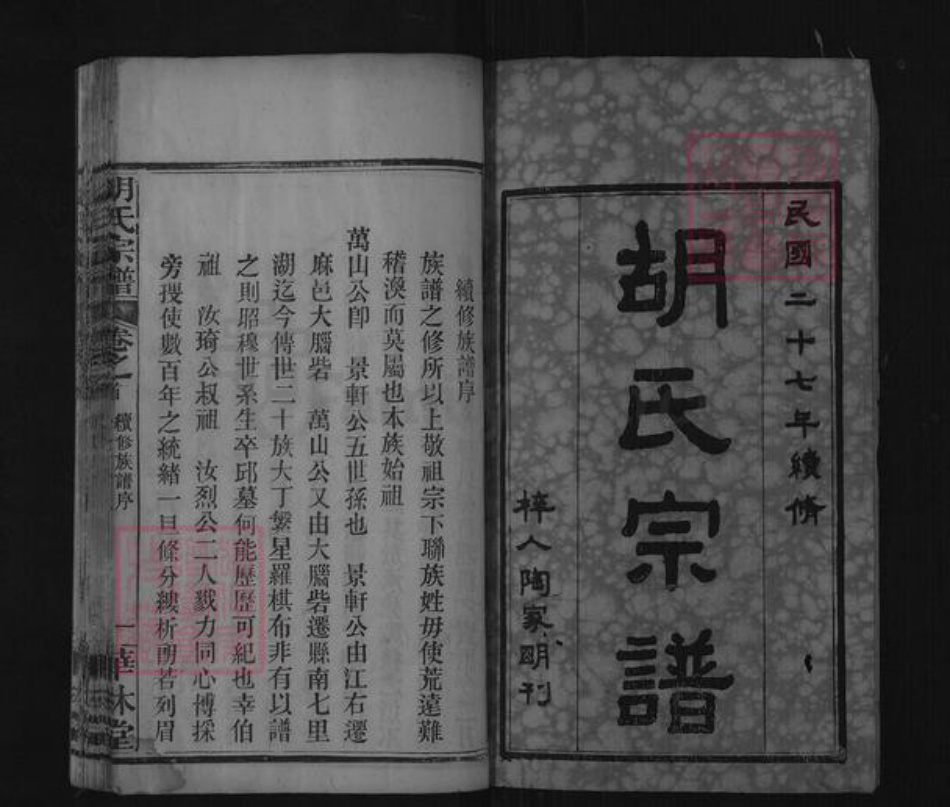 民國二十七年續修
胡氏宗譜
梓人陶家明刊
續修族譜序
族譜之修所以上敬祖宗下聯族姓毋使荒遠難
稽渙而莫屬也本族始祖
萬山公卽 景軒公五世孫也 景軒公由江右遷
麻邑大腦砦 萬山公又由大腦砦遷縣南七里
湖迄今傳世二十族大丁繁星羅棋布非有以譜
之則昭穆世系生卒邱墓何能歷歷可紀也幸伯
祖 汝琦公叔祖 汝烈公二人戮力同心博採
旁搜使數百年之統緒一旦條分縷析朗若列眉
胡氏宗譜 卷之首 續修族譜序 一 華林堂